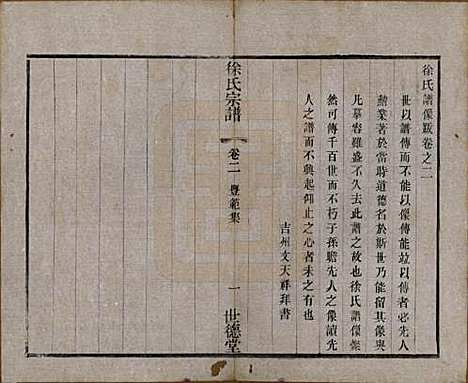 徐氏譜像跋卷之二
世以譜傳而不能以像傳能垂以像傳者必先人
勳業著於當時道德名於斯世乃能留其像與
凡摹容雖盛不久去此譜之故也徐氏譜像燦
然可傳千百世而不朽子孫瞻先人之像讀先
人之譜而不興起仰止之心者未之有也
吉州文天祥拜書
徐氏宗譜
卷二
豐範集
一
世德堂